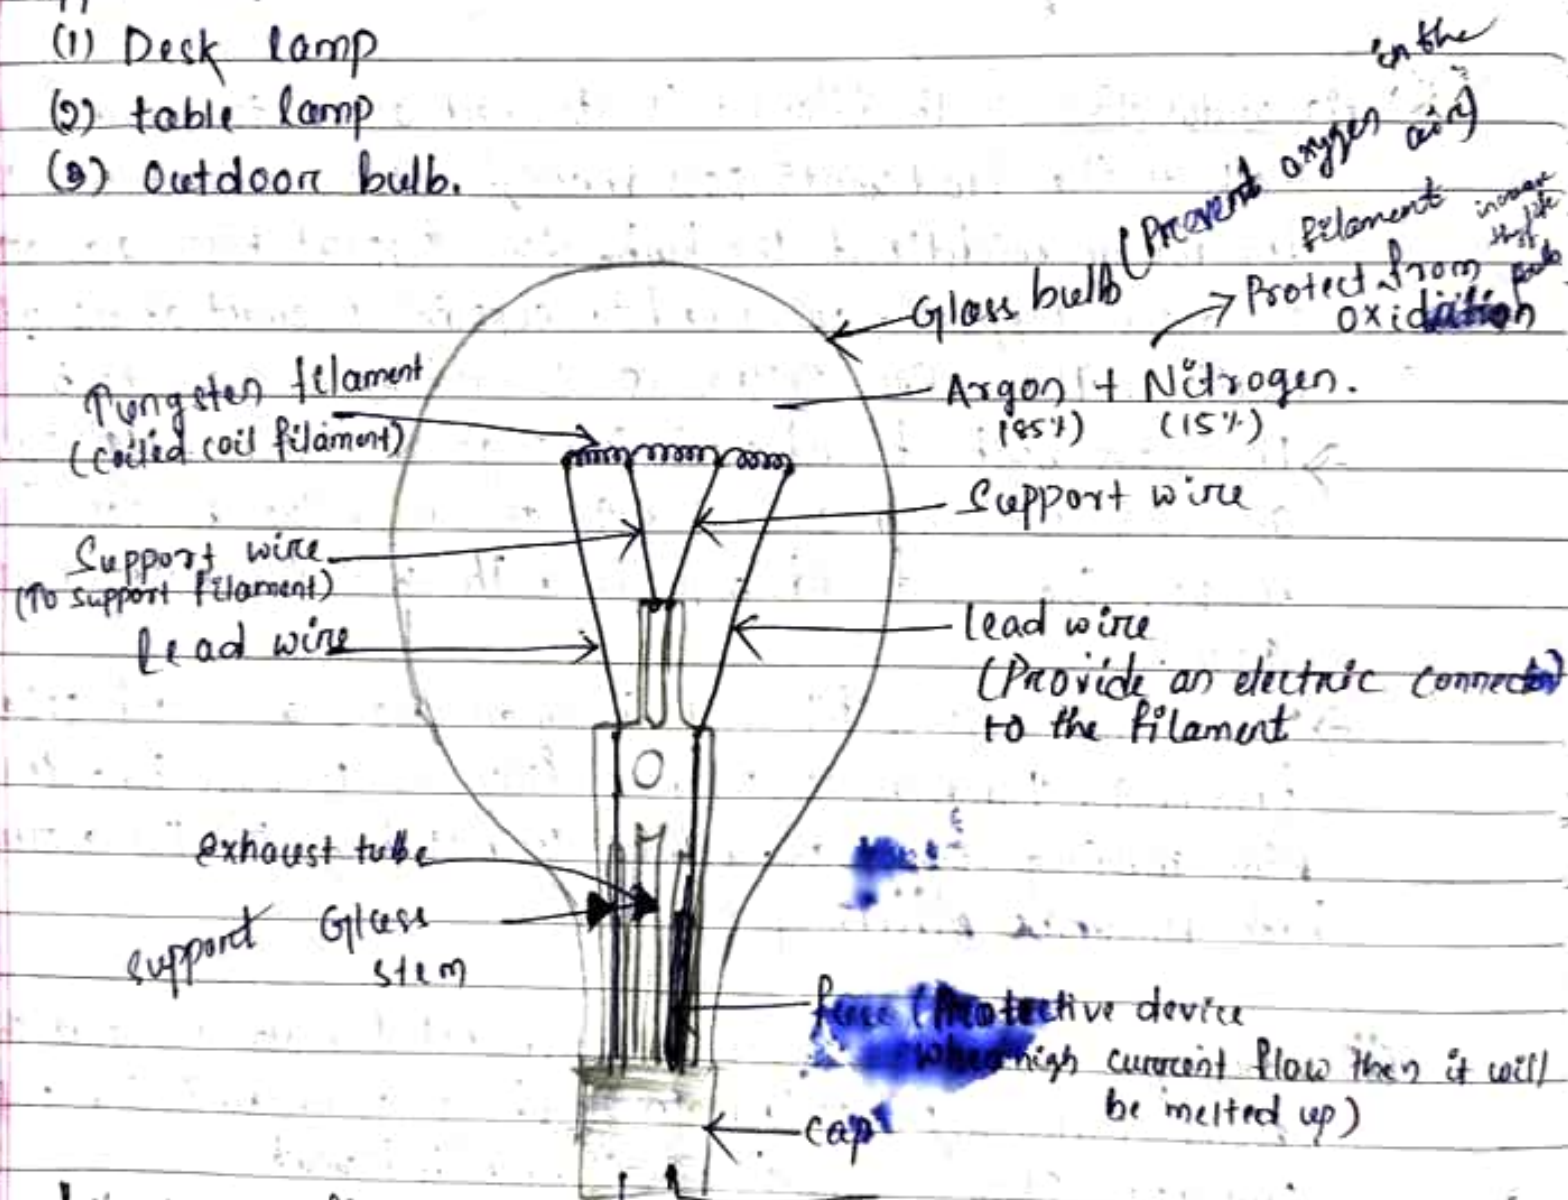 (1) Desk lamp
(2) table lamp
(3) Outdoor bulb.
Glass bulb (Prevent oxygen in the
air)
filament
Protect from
oxidation
increase
the life
Argon + Nitrogen.
(85%) (15%)
Tungsten filament
(coiled coil filament)
Support wire
Support wire
(To support filament)
Lead wire
lead wire
(Provide an electric
to the filament
exhaust tube
support Glass
stem
fuse (Protective device
when high current flow then it will
be melted up)
cap